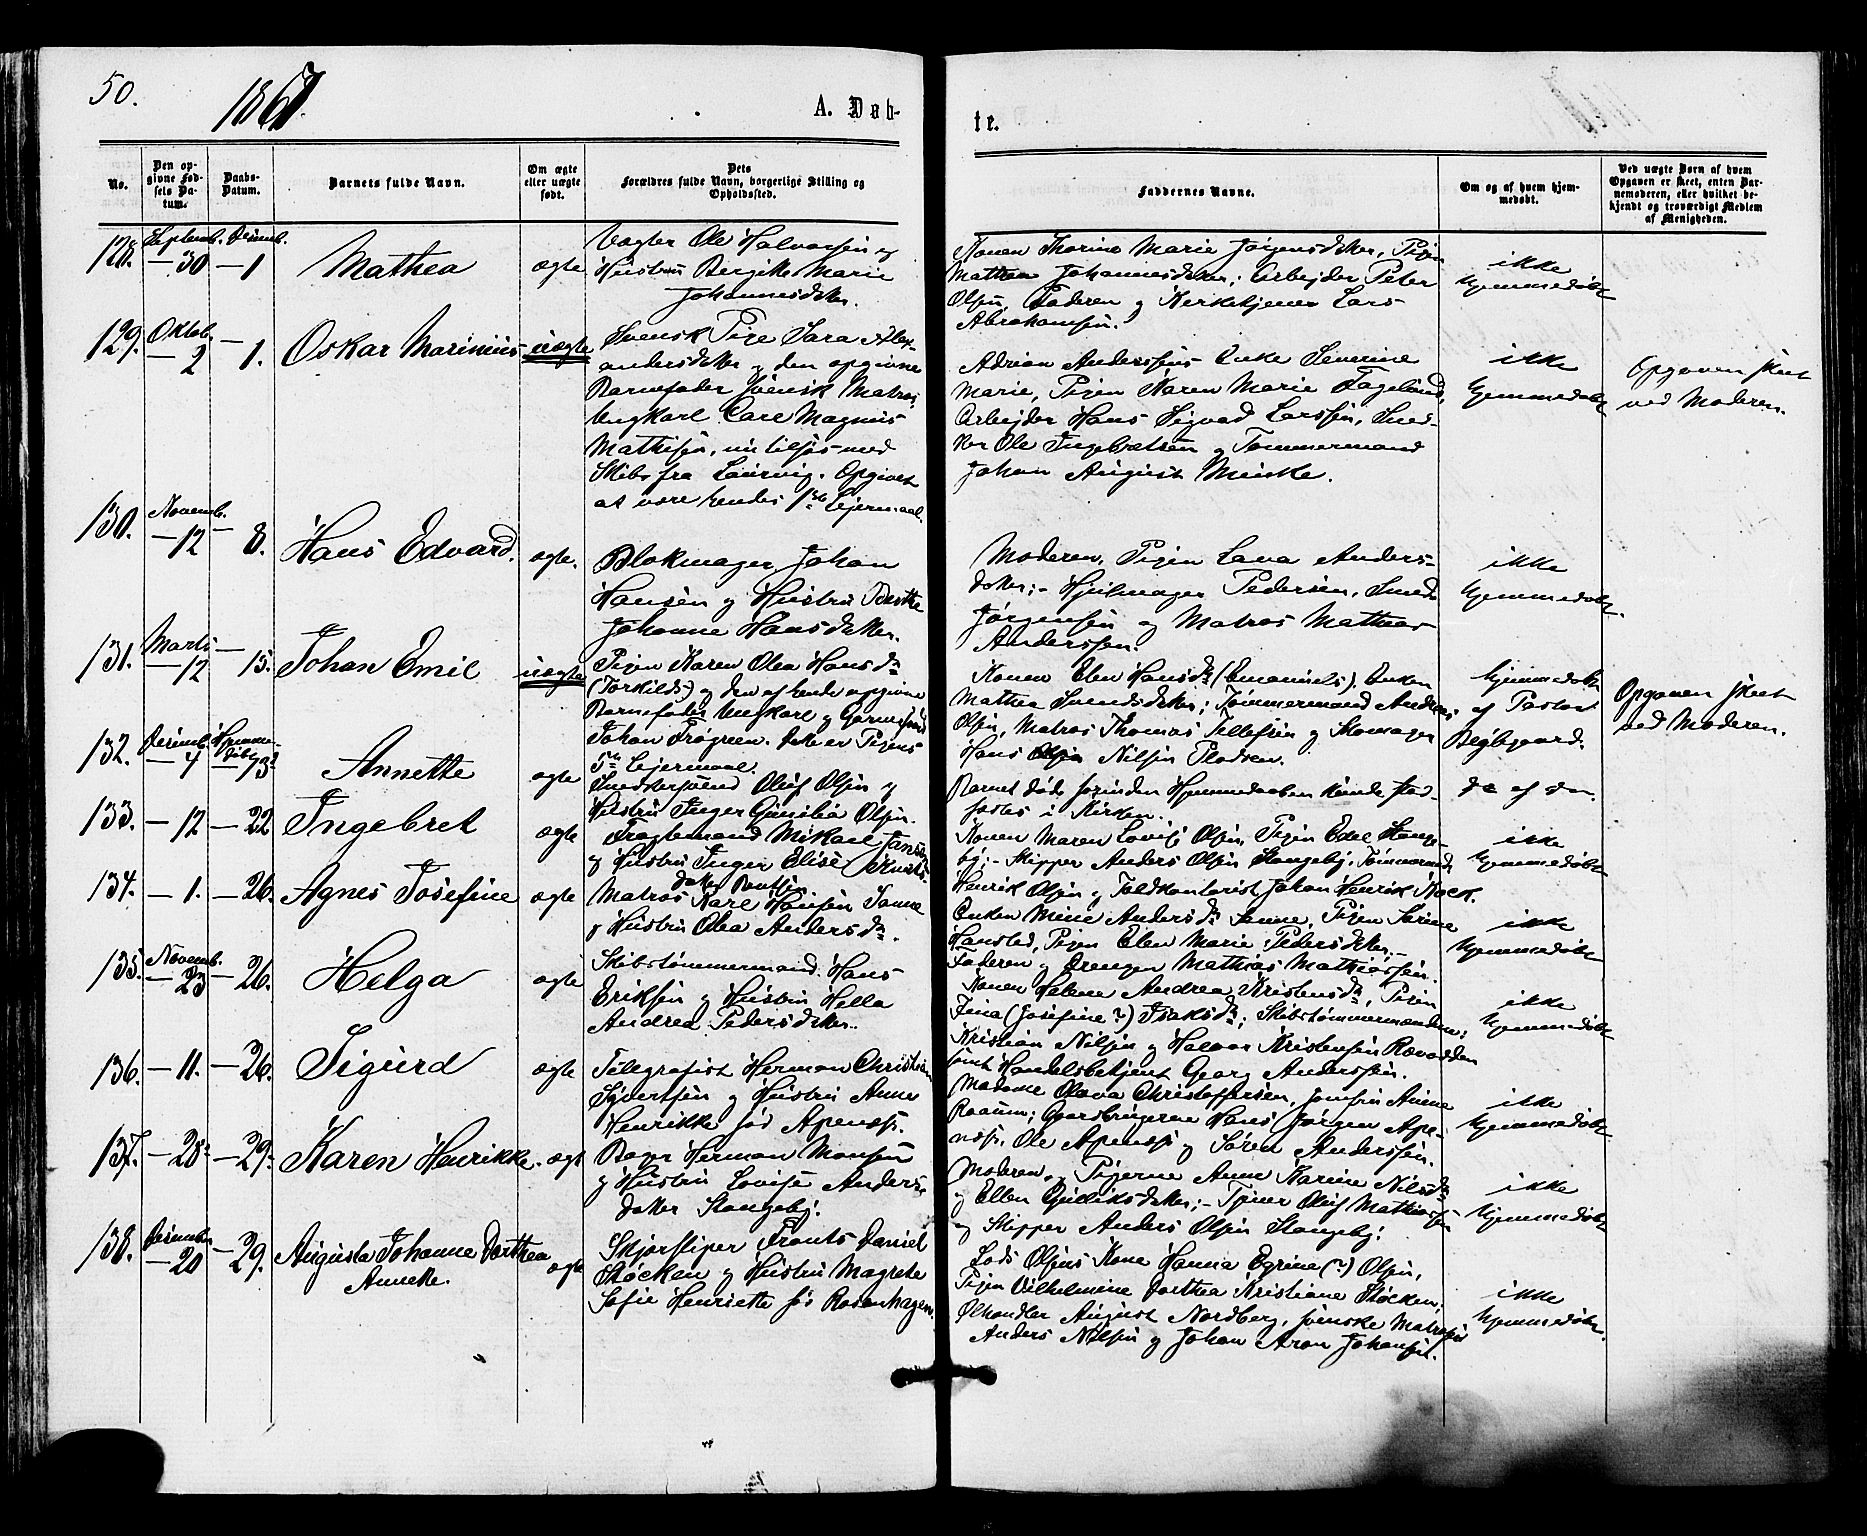 50.
1867.
A. Døb-
te.
No.
Den op-
givne Fød-
sels Da-
tum.
Daabs-
Datum.
Barnets fulde Navn.
Om ægte
eller uægte
født.
Dets
Forældres fulde Navn, borgerlige Stilling og
Opholdssted.
Faddernes Navne.
Om og af hvem hjem-
medøbt.
Ved uægte Børn af hvem
Opgaven er skeet, enten Bar-
nemoderen, eller hvilket be-
kjendt og troværdigt Medlem
af Menigheden.
128.
Septemb.
— 30
Desemb.
— 1
Mathea
ægte
Vægter Ole Halvorsen og
Hustru Bergitte Marie
Johannesdatter.
Konen Thorine Marie Jørgensdatter, Pigen
Mathea Johannesdatter; Arbejder Peter
Olsen, Faderen og Kirketjener Lars
Abrahamsen.
ikke
hjemmedøbt
129.
Oktob.
— 2
— 1.
Oskar Marinius
uægte
Svensk Pige Sara Alex-
andersdatter og den opgivne
Barnefader svensk Matros,
Ungkarl Carl Magnus
Mathisen, nu tilsjøs med
Skib fra Laurvig. Opgivet
at være hendes 1ste Lejermaal.
Adrian Anderssens Enke Severine
Marie, Pigen Karen Marie Fagelund,
Arbejder Hans Sigvad Larssen, Sned-
ker Ole Ingebretsen og Tømmermand
Johan August Meiske.
ikke
hjemmedøbt
Opgaven skeet
ved Moderen.
130.
Novemb.
— 12
— 8.
Hans Edvard.
ægte.
Blokmager Johan
Hansen og Hustru Berthe
Johanne Hansdatter.
Moderen, Pigen Lava Anders-
datter; - Hjulmager Pedersen, Smed
Jørgensen og Matros Mathias
Anderssen.
ikke
hjemmedøbt.
131.
Marts
— 12
— 15.
Johan Emil
uægte
Pigen Karen Olea Hansdr.
(Torkilds.) og den af hende opgivne
Barnefader Ungkarl og Garnisons
Johan Frøgreen. Dette er Pigens
5te Lejermaal.
Konen Elen Hansdr. (Emanuels). Enken
Mathea Svendsdatter; Tømmermand Andreas
Olsen, Matros Thomas Tellefsen og Skomager
Hans Nilsen Pladsen.
hjemmedøbt
af Pastor
Bejbgaard.
Opgaven skeet
ved Moderen.
132.
Desemb.
— 4
Hjemme-
døbt
— 13.
Annette
ægte
Snedkersvend Oluf Olsen og
Hustru Inger Gunilia Olsen.
Barnet døde forinden Hjemmedaaben kunde stad-
fæstes i Kirken.
do af do.
133.
— 12
— 22
Ingebret
ægte
Fragtemand Mikael Jansen
og Hustru Inger Elise Knuds-
datter
Konen Maren Lovise Olsen, Pigen Edel Stange-
by; - Skipper Anders Olsen Stangeby, Tømmermand
Henrik Olsen og Toldkontorist Johan Henrik Stock.
ikke
hjemmedøbt
134.
— 1.
— 26.
Agnes Josefine
ægte
Matros Karl Hansen Sanne
og Hustru Olea Andersdr.
Enken Mine Andersdr. Sanne, Pigen Sarine
Hansted, Pigen Elen Marie Pedersdatter, -
Faderen og Drengen Mathias Mathiassen.
ikke
hjemmedøbt
135.
Novemb.
— 23
— 26.
Helga
ægte
Skibstømmermand Hans
Eriksen og Hustru Hella
Andrea Pedersdatter.
Konen Helene Andrea Kristensdr., Pigen
Fina (Josefine?) Isaksdr.; Skibstømmermændene;
Kristian Nilsen og Halvor Kristensen Rævødden
samt Handelsbetjent Georg Anderssen.
ikke
hjemmedøbt
136.
— 11.
— 26.
Sigurd
ægte
Telegrafist Herman Christian
Syvertsen og Hustru Anne
Henrikke fød Apenæs.
Madame Olava Christoffersen, Jomfru Anine
Raaum; Gaardbrugerne Hans Jørgen Ape-
næs, Ole Apenæs og Søren Anderssen.
ikke
hjemmedøbt
137.
— 28.
— 29.
Karen Henrikke.
ægt
Bager Herman Monsen
og Hustru Lovise Anders-
datter Stangeby.
Moderen, Pigerne Anne Karine Nilsdr.
og Ellen Gulliksdatter; - Tjener Oluf Mathiassen
og Skipper Anders Olsen Stangeby.
ikke
hjemmedøbt
138.
Desember
— 20
— 29.
Augusta Johanne Dorthea
Annette.
ægte
Skjærsliper Frants Daniel
Støcken og Hustru Magrete
Sofie Henriette fød Rosenhagen.
Lods Olsens Kone Hanna Egrine (?) Olsen,
Pigen Vilhelmine Dorthea Kristiane Støcken;
Ølhandler August Nordberg, svenske Matroser
Anders Nilsen og Johan Aron Johansen.
ikke
hjemmedøbt.